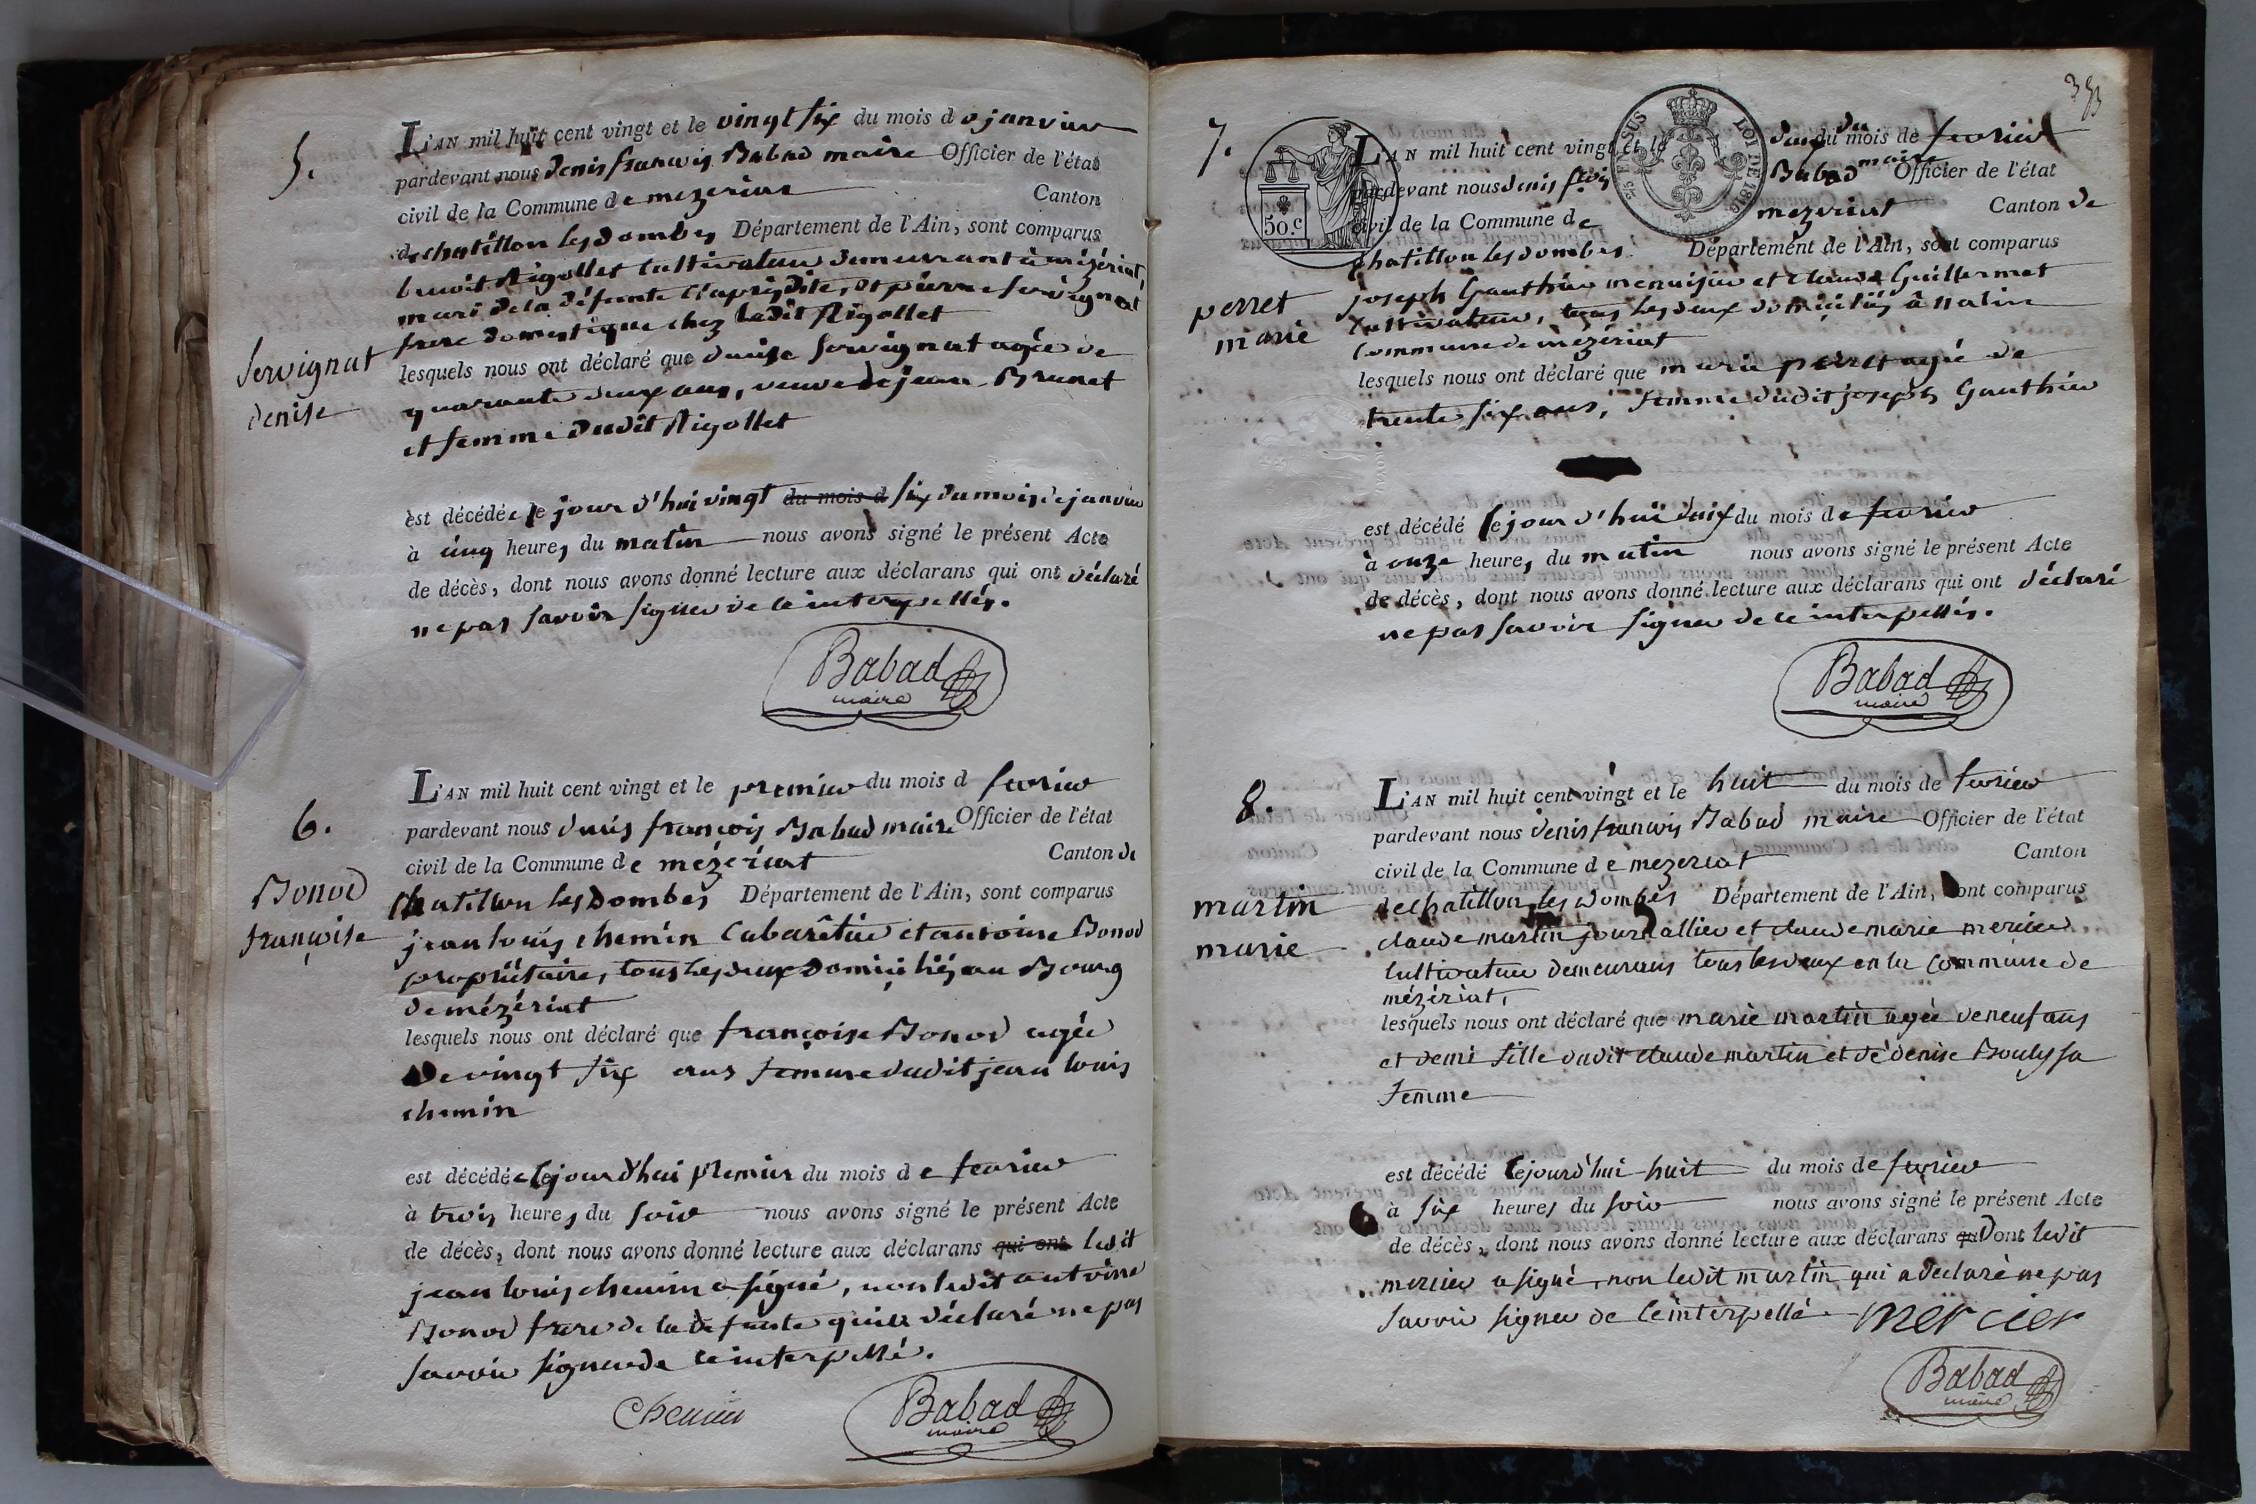 5.
L'AN mil huit cent vingt et le vingt six du mois de janvier
pardevant nous denis françois Babad maire Officier de l'état
civil de la Commune de mezeriat Canton
de chatillon les dombes Département de l'Ain, sont comparus
benoit Rigollet cultivateur demeurant à mézériat,
mari de la défunte ci après dite, et pierre servignat
frere domestique chez ledit Rigollet
Servignat
denise
lesquels nous ont déclaré que denise servignat agée de
quarante deux ans, veuve de jean Brunet
et femme dudit Rigollet
est décédée le jour d'hui vingt du mois d six du mois de janvier
à cinq heures du matin nous avons signé le présent Acte
de décès, dont nous avons donné lecture aux déclarans qui ont déclaré
ne pas savoir signer de ce interpellés.
Babad
maire
6.
L'AN mil huit cent vingt et le premier du mois d fevrier
pardevant nous denis françois Babad maire Officier de l'état
civil de la Commune de mézériat Canton de
Bonod
françoise
chatillon les Dombes Département de l'Ain, sont comparus
jean louis chemin Cabarêtier et antoine Bonod
propriétaire, tous les deux Domiciliés au Bourg
de mézériat
lesquels nous ont déclaré que françoise Bonod agée
De vingt six ans femme dudit jean louis
chemin
est décédée le jourd'hui premier du mois de fevrier
à trois heures du soir nous avons signé le présent Acte
de décès, dont nous avons donné lecture aux déclarans qui ont ledit
jean louis chemin a signé, non ledit antoine
Bonod frere de la defunte qui a déclaré ne pas
savoir signer de ce interpellé.
Chemin
Babad
maire
353
7.
50.c
LOI DE 1816
L'AN mil huit cent vingt et le deux du mois de fevrier
pardevant nous denis fçois Babad maire Officier de l'état
civil de la Commune de mezeriat Canton de
chatillon les dombes Département de l'Ain, sont comparus
perret
marie
joseph Gauthier menuisier et claude Guillermet
Cultivateur, tous les deux domiciliés à
Commune de mézériat
lesquels nous ont déclaré que marie perret agée de
trente six ans, femme dudit joseph Gauthier
est décédé le jour d'hui du mois de fevrier
à onze heures du matin nous avons signé le présent Acte
de décès, dont nous avons donné lecture aux déclarans qui ont déclaré
ne pas savoir signer de ce interpellés.
Babad
maire
8.
L'AN mil huit cent vingt et le huit du mois de fevrier
pardevant nous denis françois Babad maire Officier de l'état
civil de la Commune de mezeriat Canton
martin
marie
de chatillon les Dombes Département de l'Ain, sont comparus
claude martin journallier et claude marie mercier
Cultivateur demeurans tous les deux en la commune de
mézériat,
lesquels nous ont déclaré que marie martin agée de neuf ans
et demi fille dudit claude martin et de denise Bouly sa
femme
est décédé le jourd'hui huit du mois de fevrier
à six heures du soir nous avons signé le présent Acte
de décès, dont nous avons donné lecture aux déclarans qui Dont ledit
mercier a signé, non ledit martin qui a déclaré ne pas
savoir signer de ce interpellé.
mercier
Babad
maire